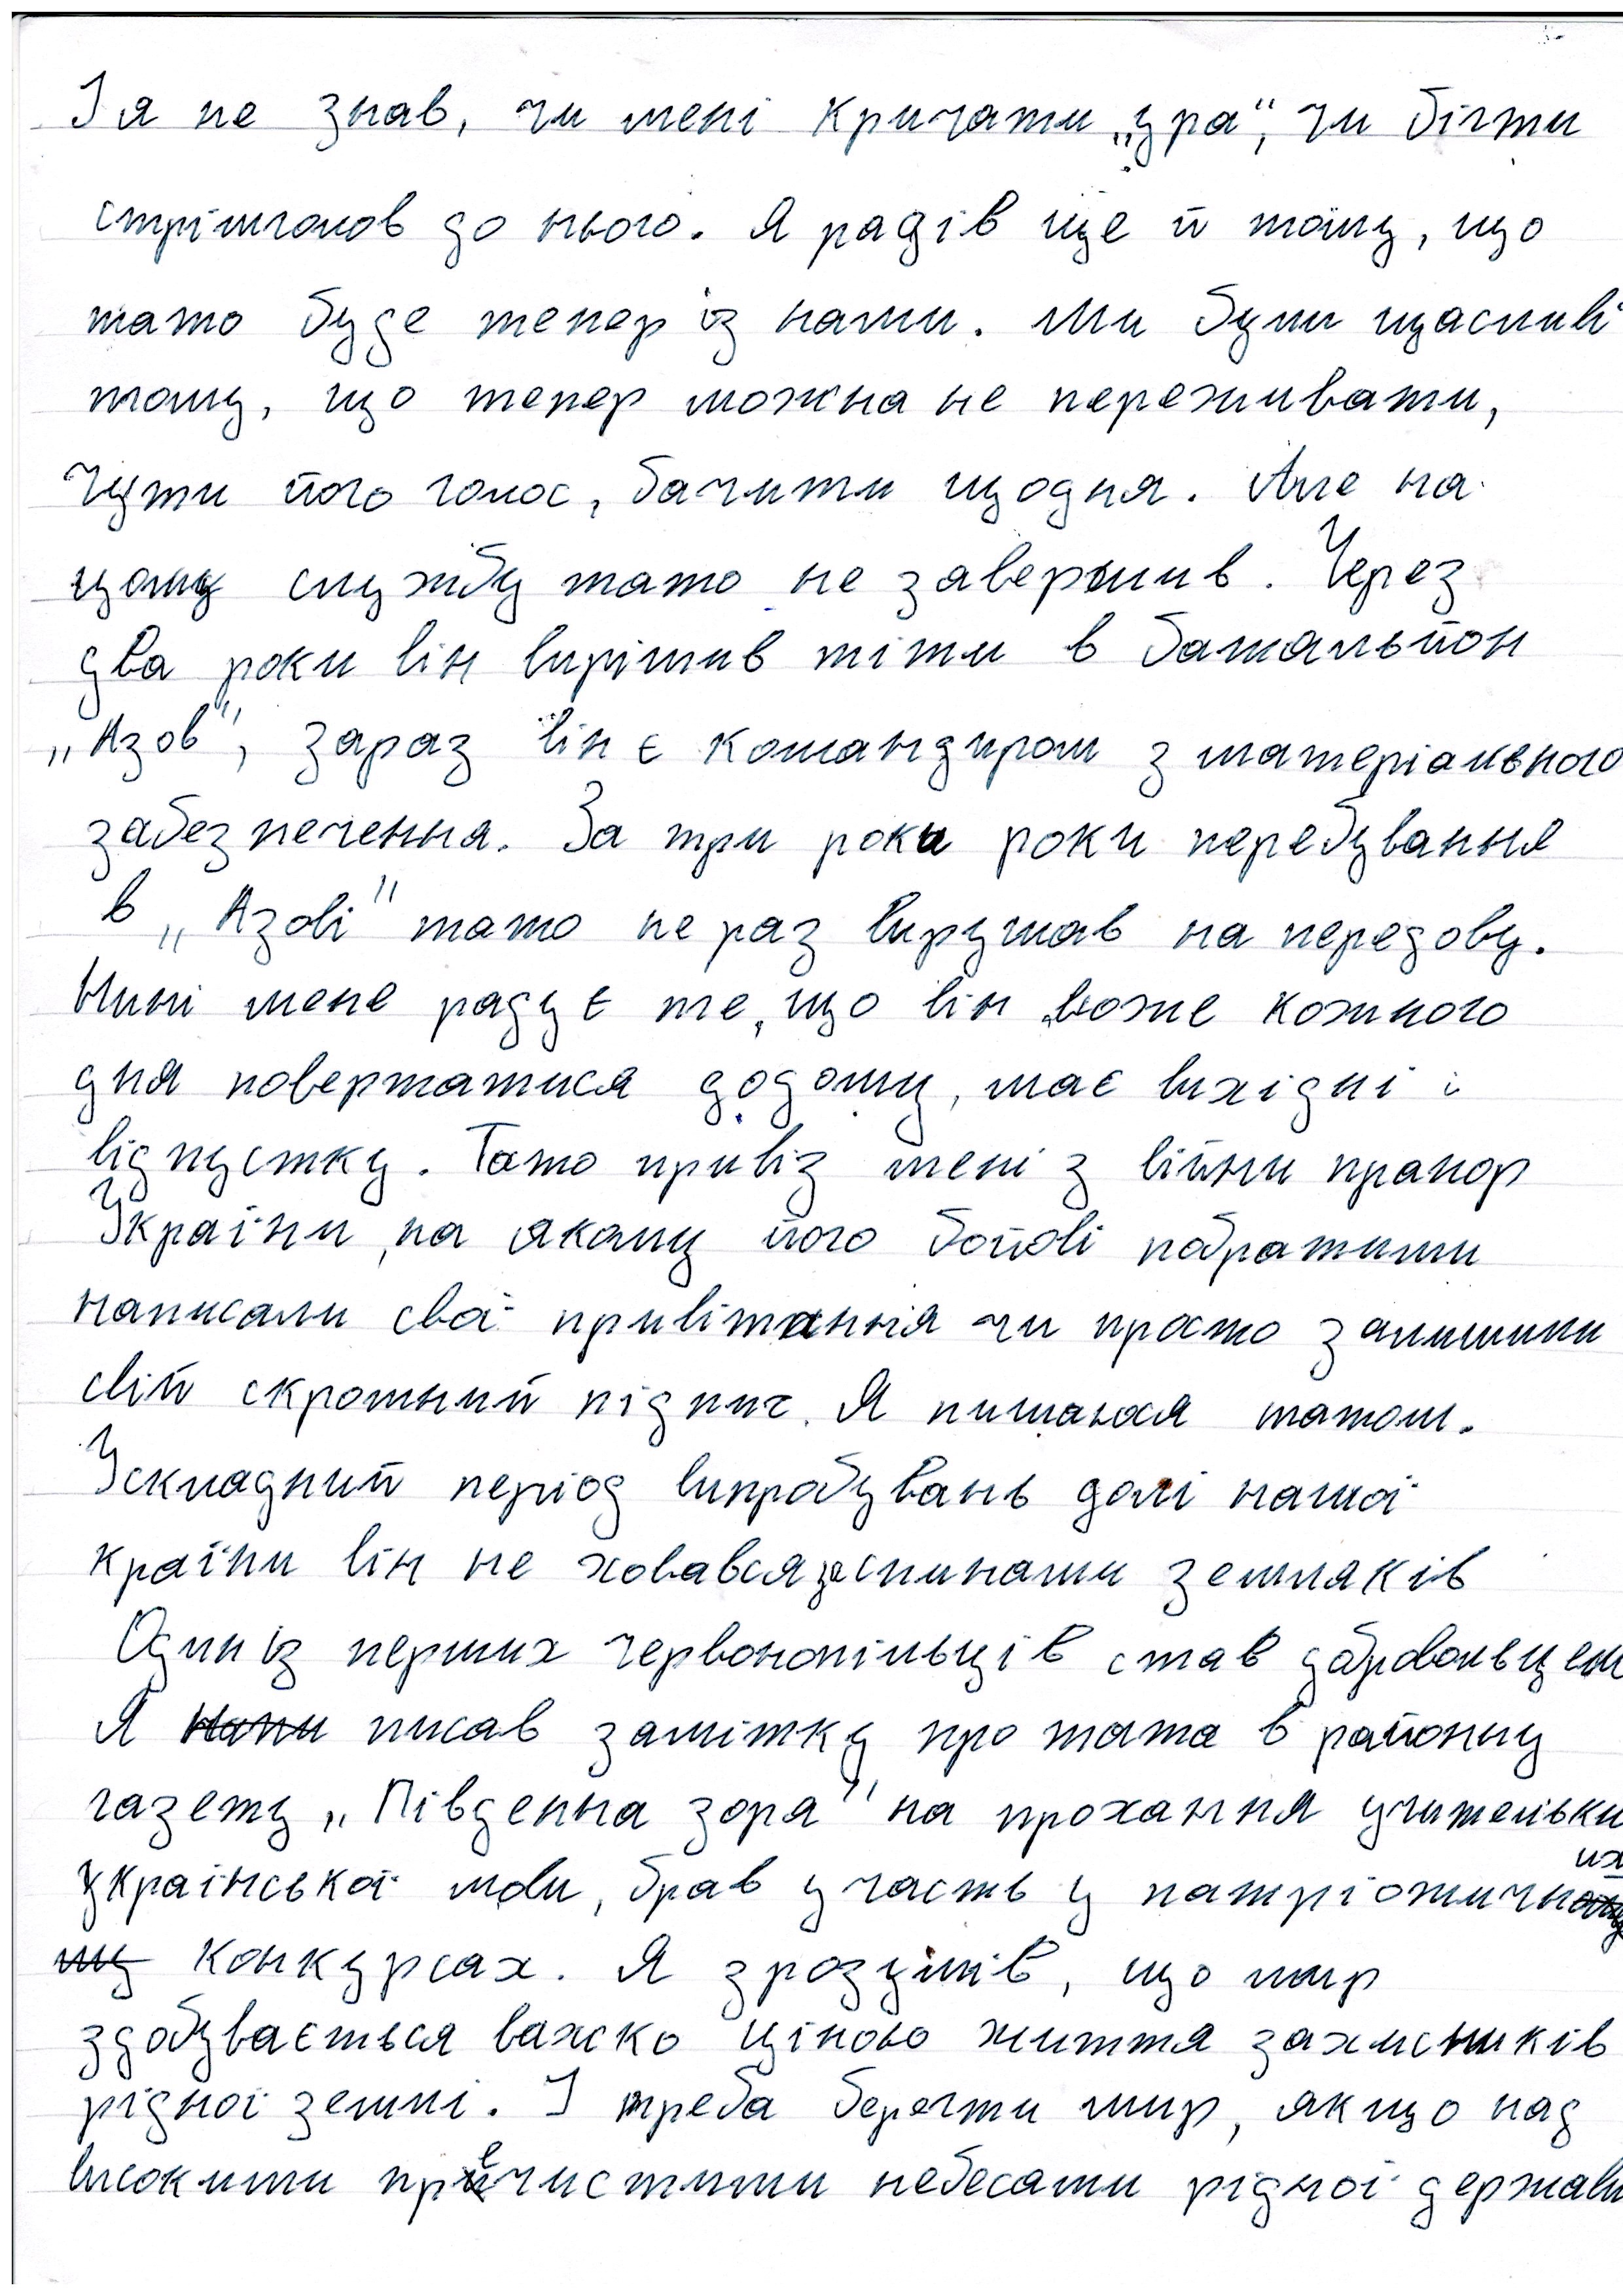 І я не знав, чи мені кричати „ура“, чи бігти
стрімголов до нього. Я радів ще й тому, що
тато буде тепер із нами. Ми були щасливі
тому, що тепер можна не переживати,
чути його голос, бачити щодня. Але на
цьому службу тато не завершив. Через
два роки він вирішив піти в батальйон
„Азов“, зараз він є командиром з матеріального
забезпечення. За три роки роки перебування
в „Азові“ тато не раз вирушав на передову.
Нині мене радує те, що він може кожного
дня повертатися додому, має вихідні і
відпустку. Тато привіз мені з війни прапор
України, на якому його бойові побратими
написали свої привітання чи просто залишили
свій скромний підпис. Я пишаюся татом.
У складний період випробувань долі нашої
країни він не ховався за спинами земляків
Один із перших червонопільців став добровольцем
Я писав замітку про тата в районну
газету „Південна зоря“ на прохання учительки
української мови, брав участь у патріотичних
конкурсах. Я зрозумів, що мир
здобувається важко ціною життя захисників
рідної землі. І треба берегти мир, якщо над
високими пречистими небесами рідної держави